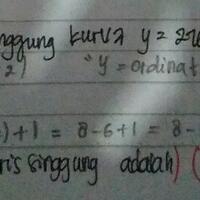 nggung kurva y = 2
2) "y = ordinat
) + 1 = 8 - 6 + 1 = 8 -
ris singgung adalah) (